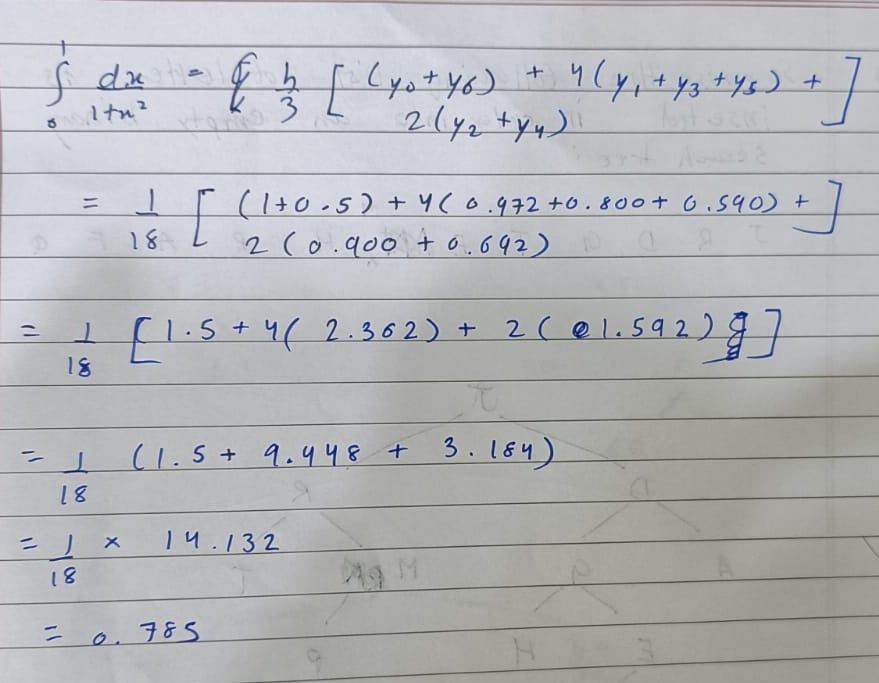 ∫₀¹ dx/1+x² = h/3 [ (y₀ + y₆) + 4(y₁ + y₃ + y₅) +
2(y₂ + y₄) ]
= 1/18 [ (1+0.5) + 4(0.972+0.800+0.590) +
2(0.900+0.692) ]
= 1/18 [1.5 + 4(2.362) + 2(1.592)]
= 1/18 (1.5 + 9.448 + 3.184)
= 1/18 × 14.132
= 0.785